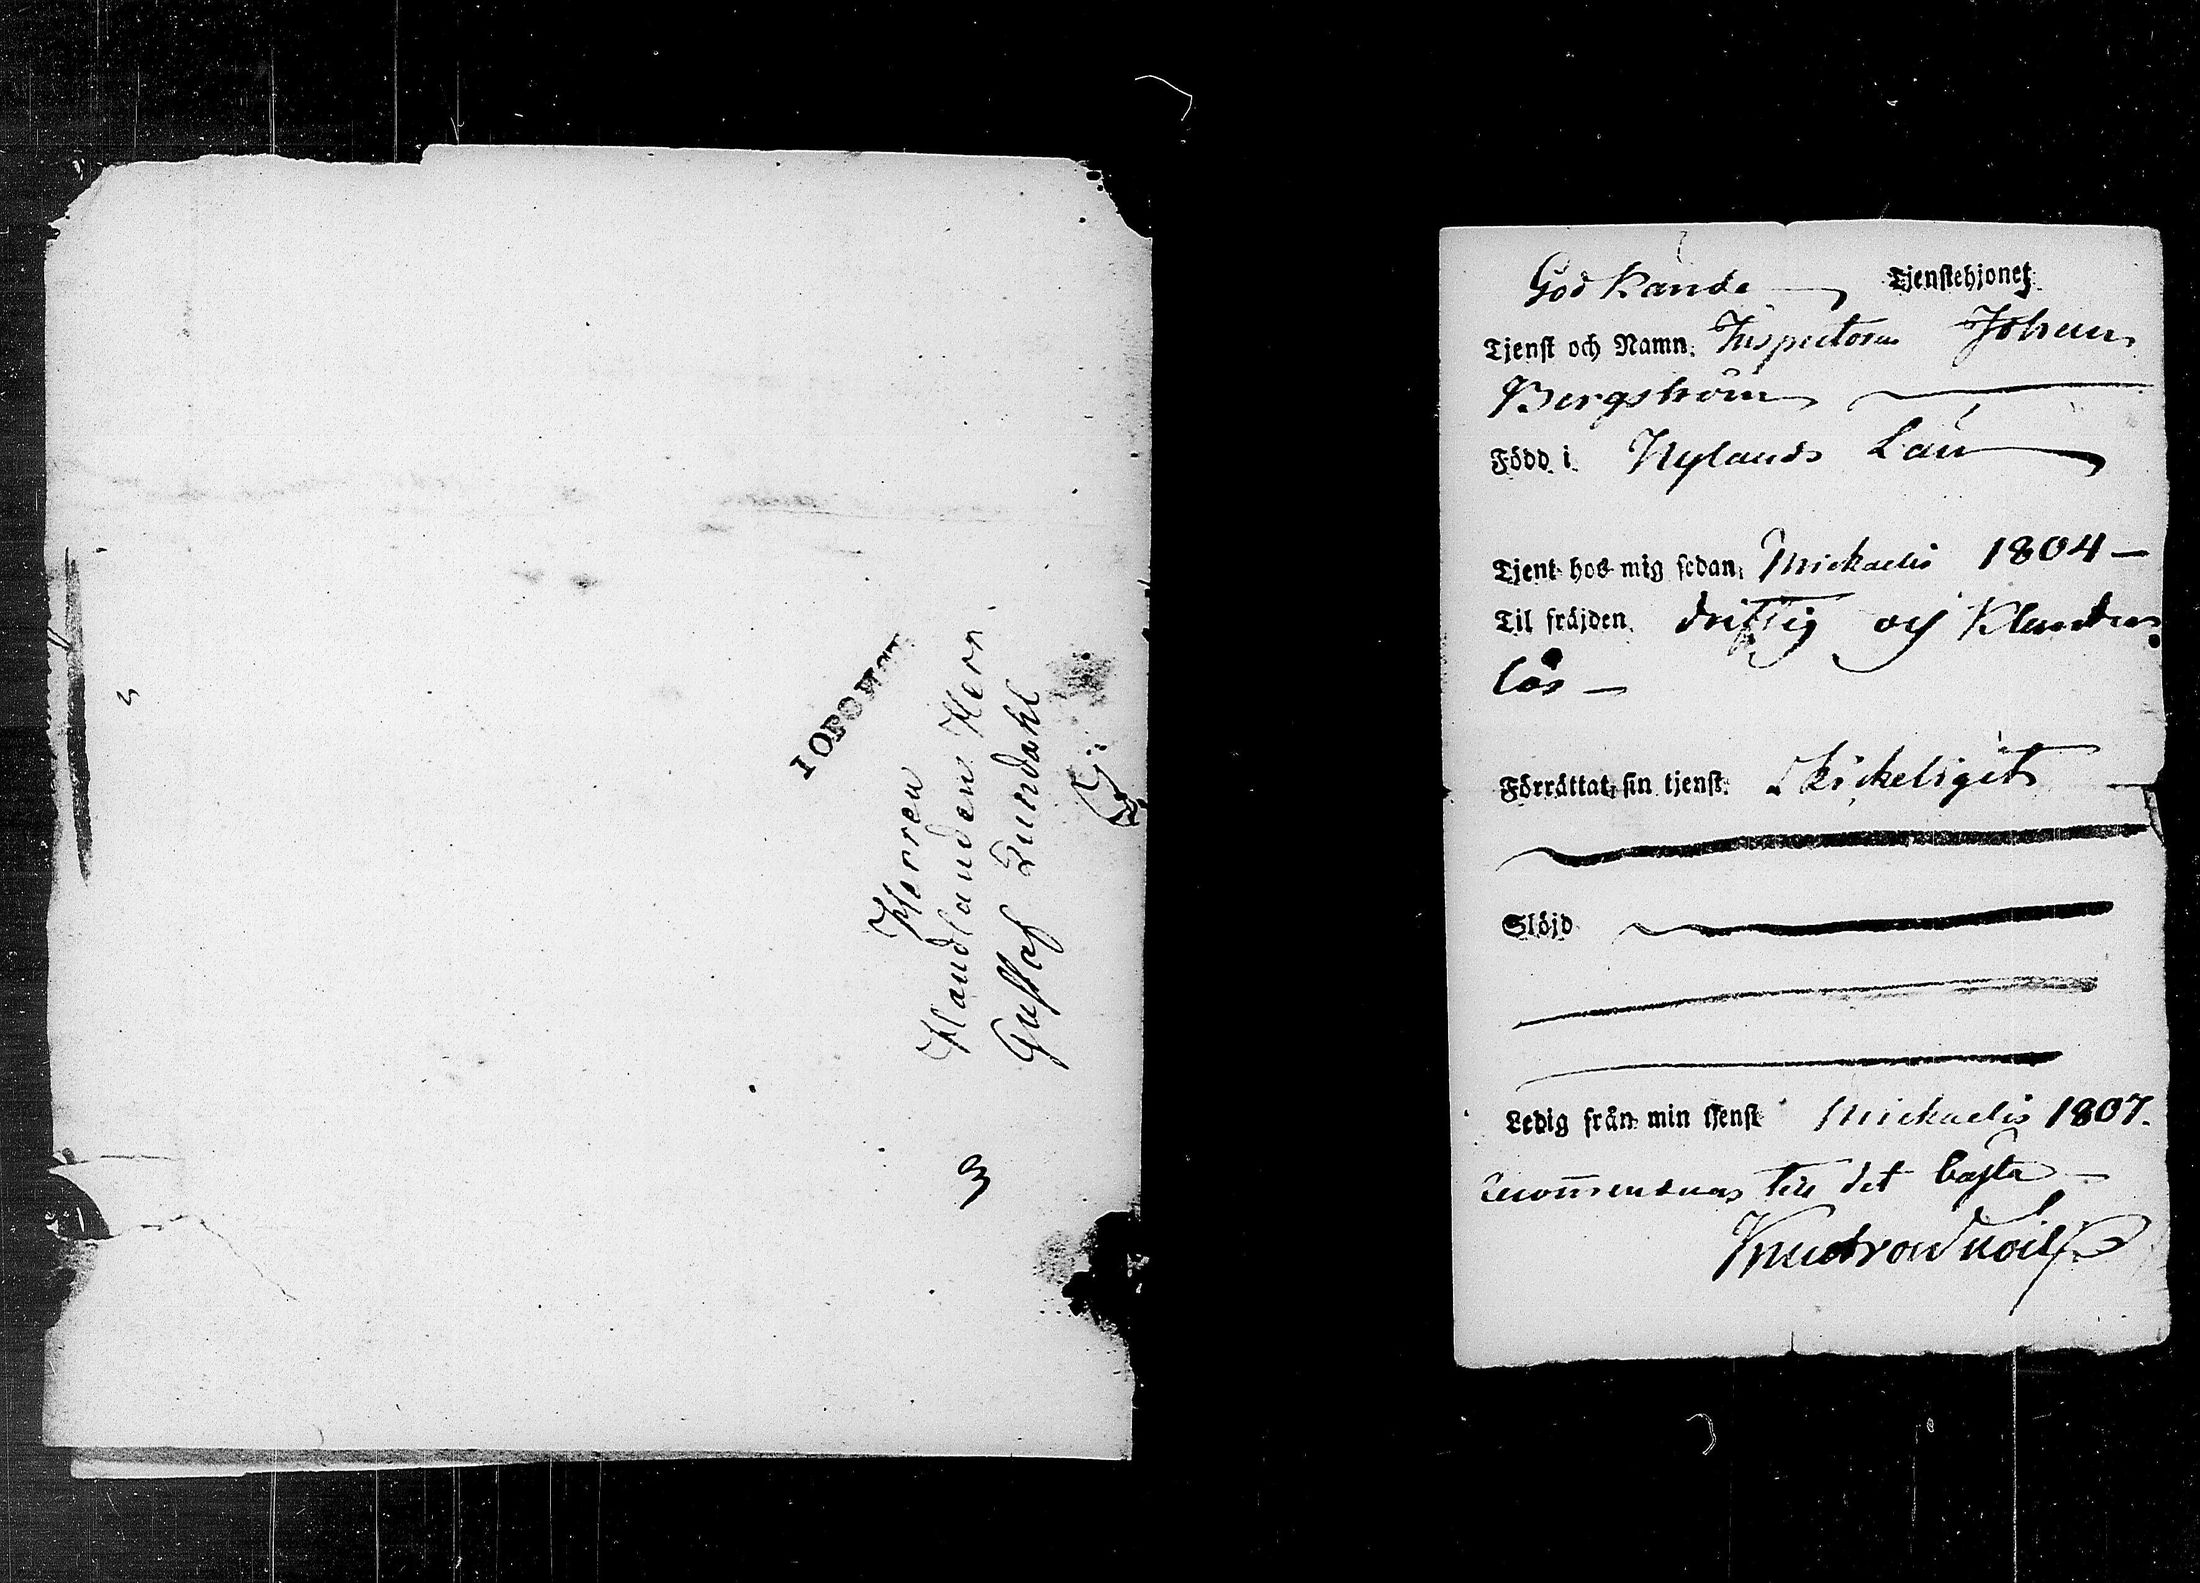 3
Herren
Handlanden Herr
Gustaf Lundahl
3
Godkände Tjenstehjonet
Tjenst och Namn. Inspectoren Johan
Bergström
Född i Nylands Län
Tjent hos mig sedan Mickaelis 1804 —
Til fräjden driftig och Klander
lös —
Förrättat sin tjenst Skickeligit
Slöjd
Ledig från min tjenst Mickaelis 1807.
recom̅enderas till det bästa —